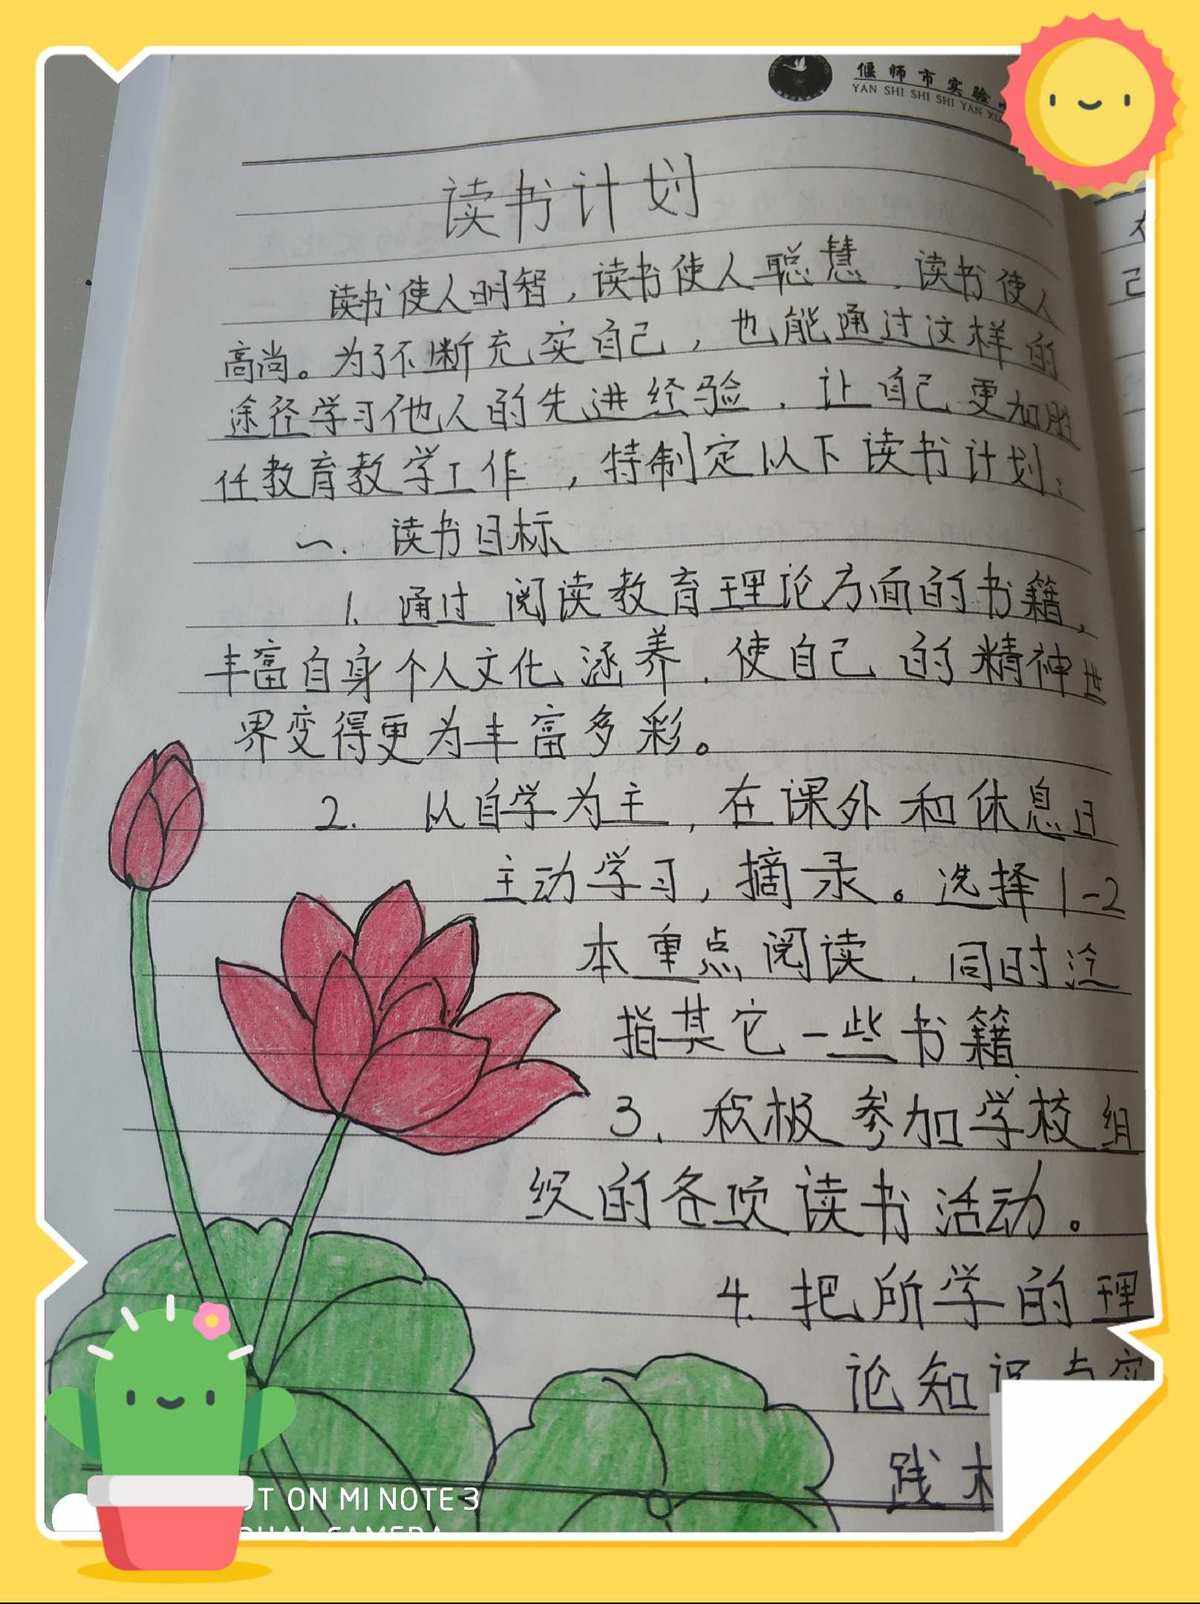 偃师市实验
YAN SHI SHI SHI YAN
读书计划
读书使人明智，读书使人聪慧，读书使人
高尚。为了不断充实自己，也能通过这样的
途径学习他人的先进经验，让自己更加胜
任教育教学工作，特制定以下读书计划：
一、读书目标
1. 通过阅读教育理论方面的书籍，
丰富自身个人文化涵养，使自己的精神世
界变得更为丰富多彩。
2. 以自学为主，在课外和休息日
主动学习，摘录。选择1-2
本重点阅读，同时涉
指其它一些书籍
3. 积极参加学校组
织的各项读书活动。
4. 把所学的理
论知识与实
践
OT ON MI NOTE 3